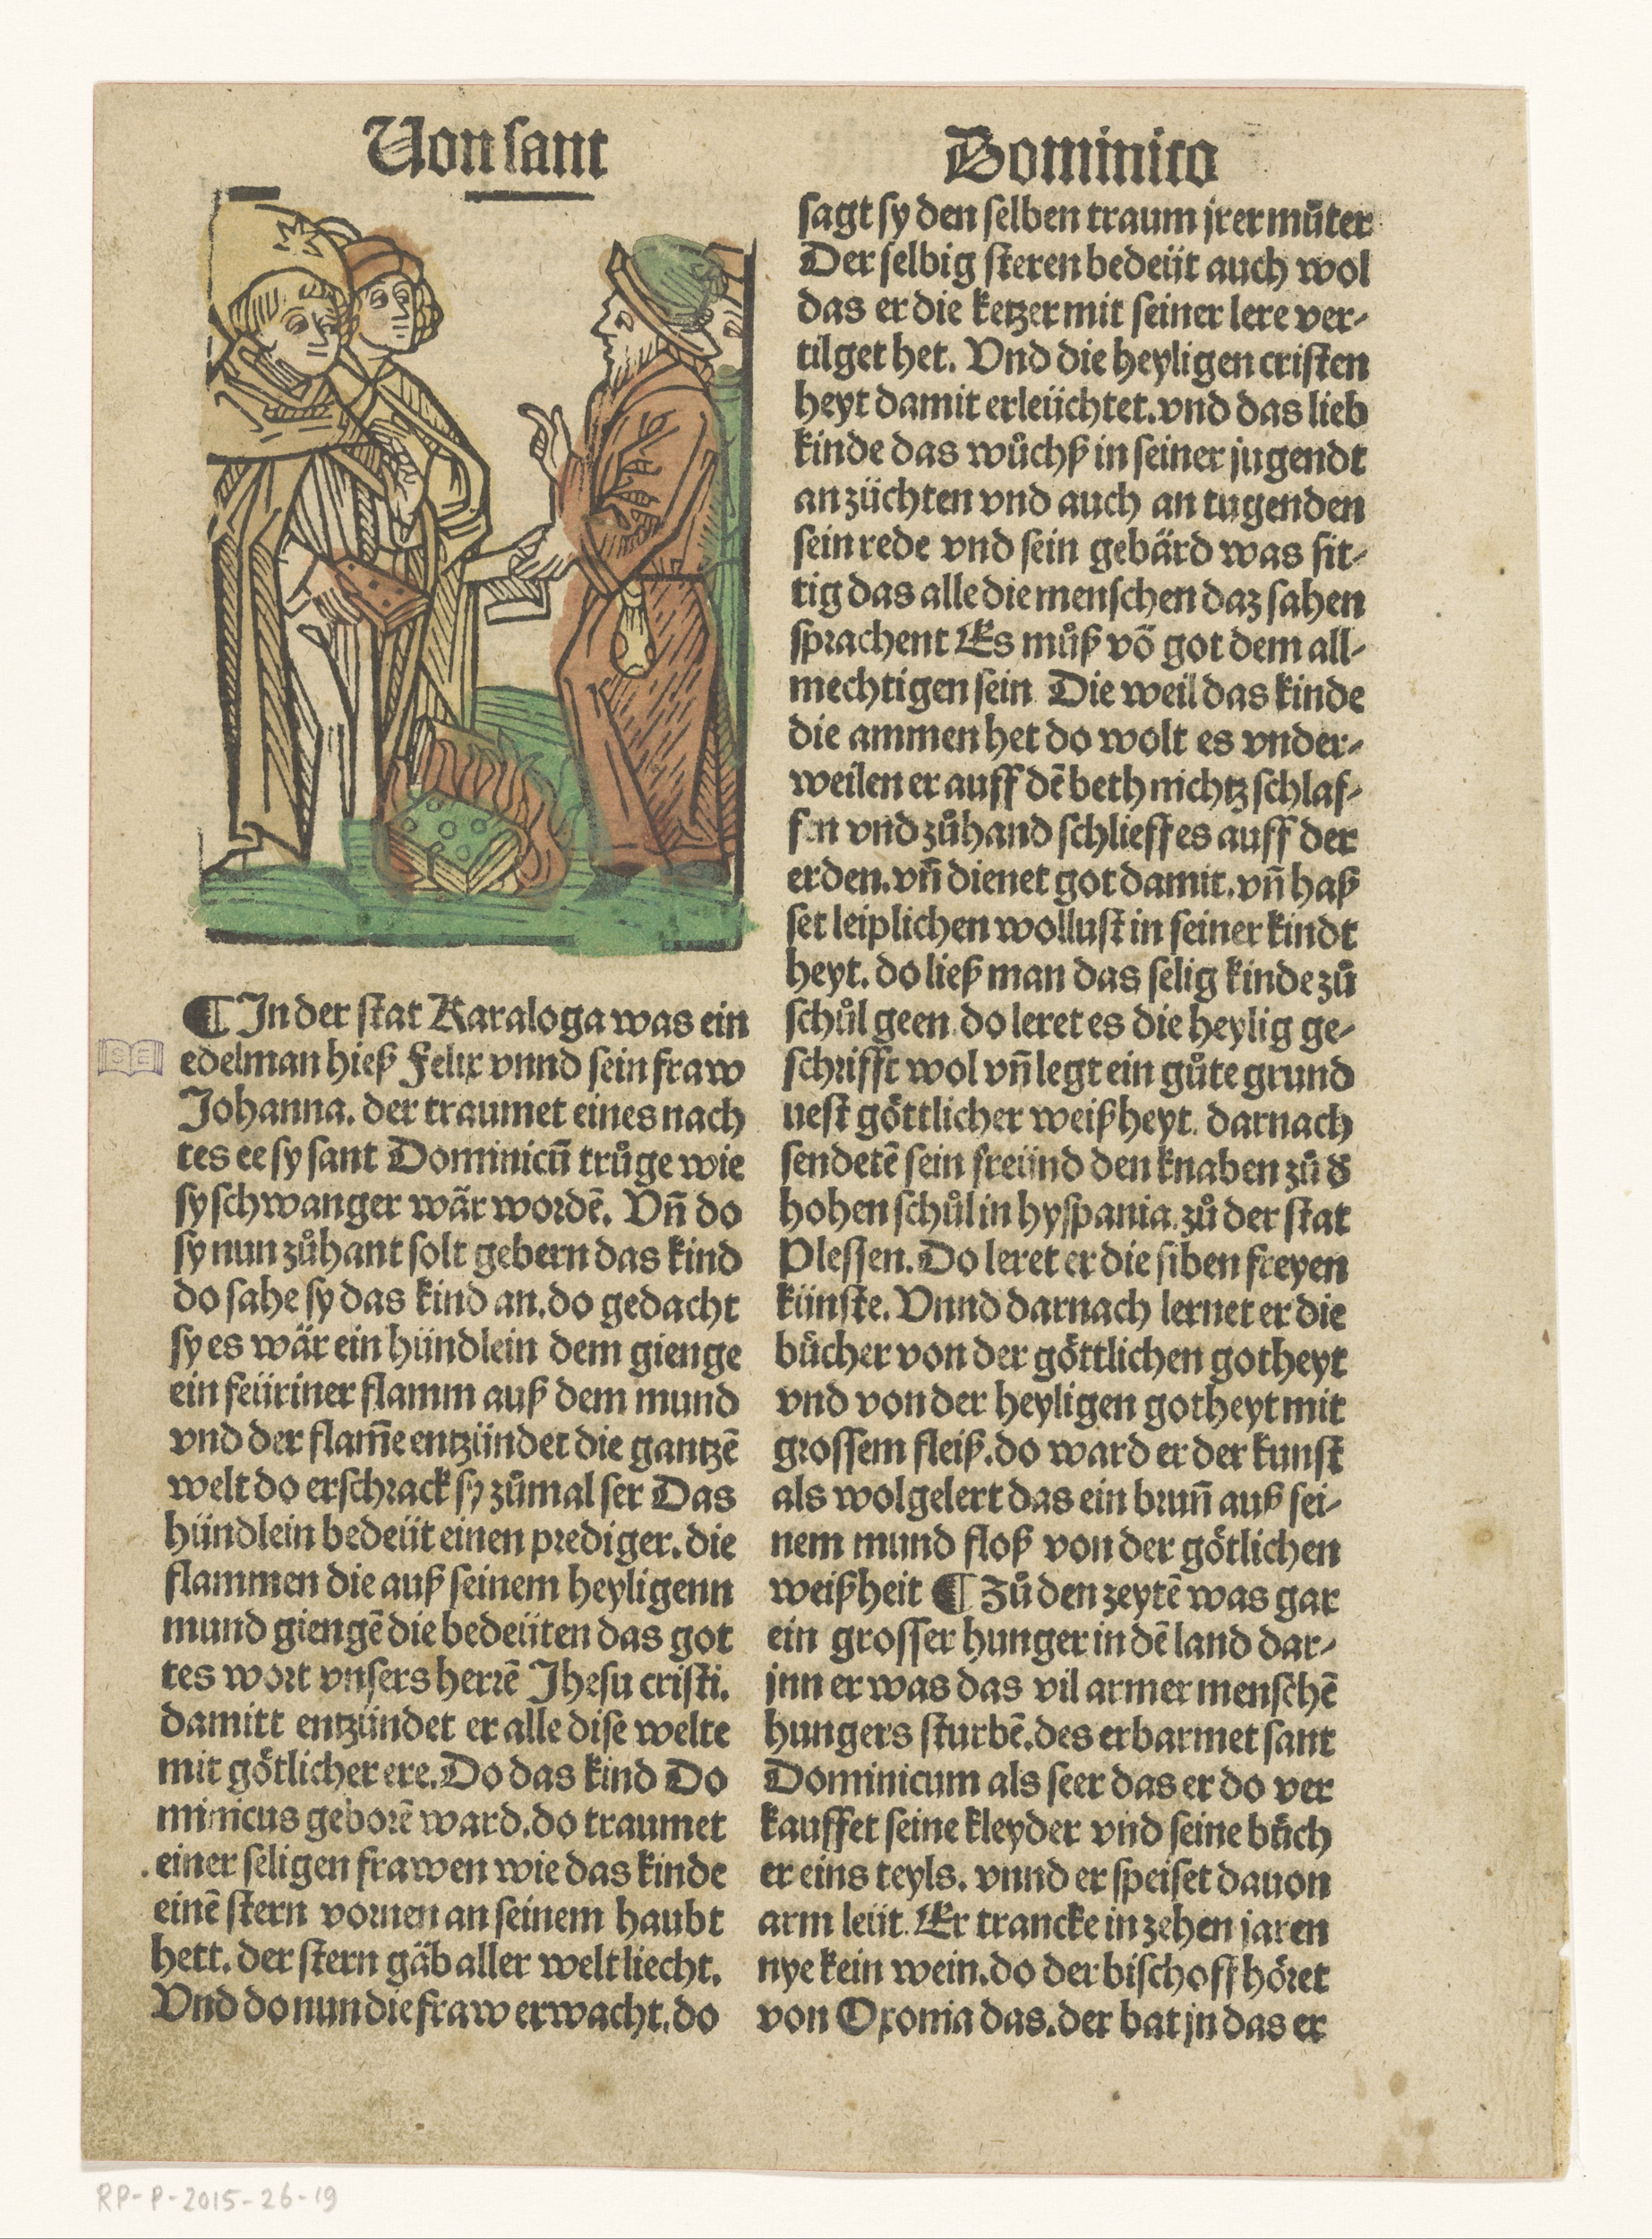 Von sant
Dominico
¶ In der stat Karaloga was ein
edelman hieß Felix vnnd sein fraw
Johanna. der traumet eines nach
tes ee sy sant Dominicū trůge wie
sy schwanger wãr wordē. Vñ do
sy nun zůhant solt gebern das kind
do sahe sy das kind an. do gedacht
sy es wär ein hündlein dem gienge
ein feüriner flamm auß dem mund
vnd der flam̄e entzündet die gantzē
welt do erschrack sy zůmal ser Das
hündlein bedeüt einen prediger. die
flammen die auß seinem heyligenn
mund giengē die bedeüten das got
tes wort vnsers herrē Jhesu cristi.
damitt entzündet er alle dise welte
mit götlicher ere. Do das kind Do
minicus geborē ward. do traumet
einer seligen frawen wie das kinde
einē stern vornen an seinem haubt
hett. der stern gäb aller welt liecht.
Vnd do nun die fraw erwacht. do
sagt sy den selben traum jrer můter
Der selbig steren bedeüt auch wol
das er die ketzer mit seiner lere ver-
tilget het. Vnd die heyligen cristen
heyt damit erleüchtet. vnd das lieb
kinde das wůchß in seiner jugendt
an züchten vnd auch an tugenden
sein rede vnd sein gebärd was sit-
tig das alle die menschen daz sahen
sprachent Es můß vō got dem all-
mechtigen sein Die weil das kinde
die ammen het do wolt es vnder-
weilen er auff dē beth nichtz schlaf-
fen vnd zůhand schlieff es auff der
erden. vñ dienet got damit. vñ haß
set leiplichen wollust in seiner kindt
heyt. do ließ man das selig kinde zů
schůl geen. do leret es die heylig ge-
schrifft wol vñ legt ein gůte grund
uest göttlicher weißheyt. darnach
sendetē sein freünd den knaben zů d̄
hohen schůl in hyspania. zů der stat
Plessen. Do leret er die siben freyen
künste. Vnnd darnach lernet er die
bücher von der göttlichen gotheyt
vnd von der heyligen gotheyt mit
grossem fleiß. do ward er der kunst
als wolgelert das ein brun̄ auß sei-
nem mund floß von der götlichen
weißheit ¶ Zů den zeytē was gar
ein grosser hunger in dē land dar-
jnn er was das vil armer menschē
hungers sturbē. des erbarmet sant
Dominicum als seer das er do ver
kauffet seine kleyder vnd seine bůch
er eins teyls. vnnd er speiset dauon
arm leüt. Er trancke in zehen jaren
nye kein wein. do der bischoff höret
von Oxonia das. der bat jn das er
SE
RP-P-2015-26-19